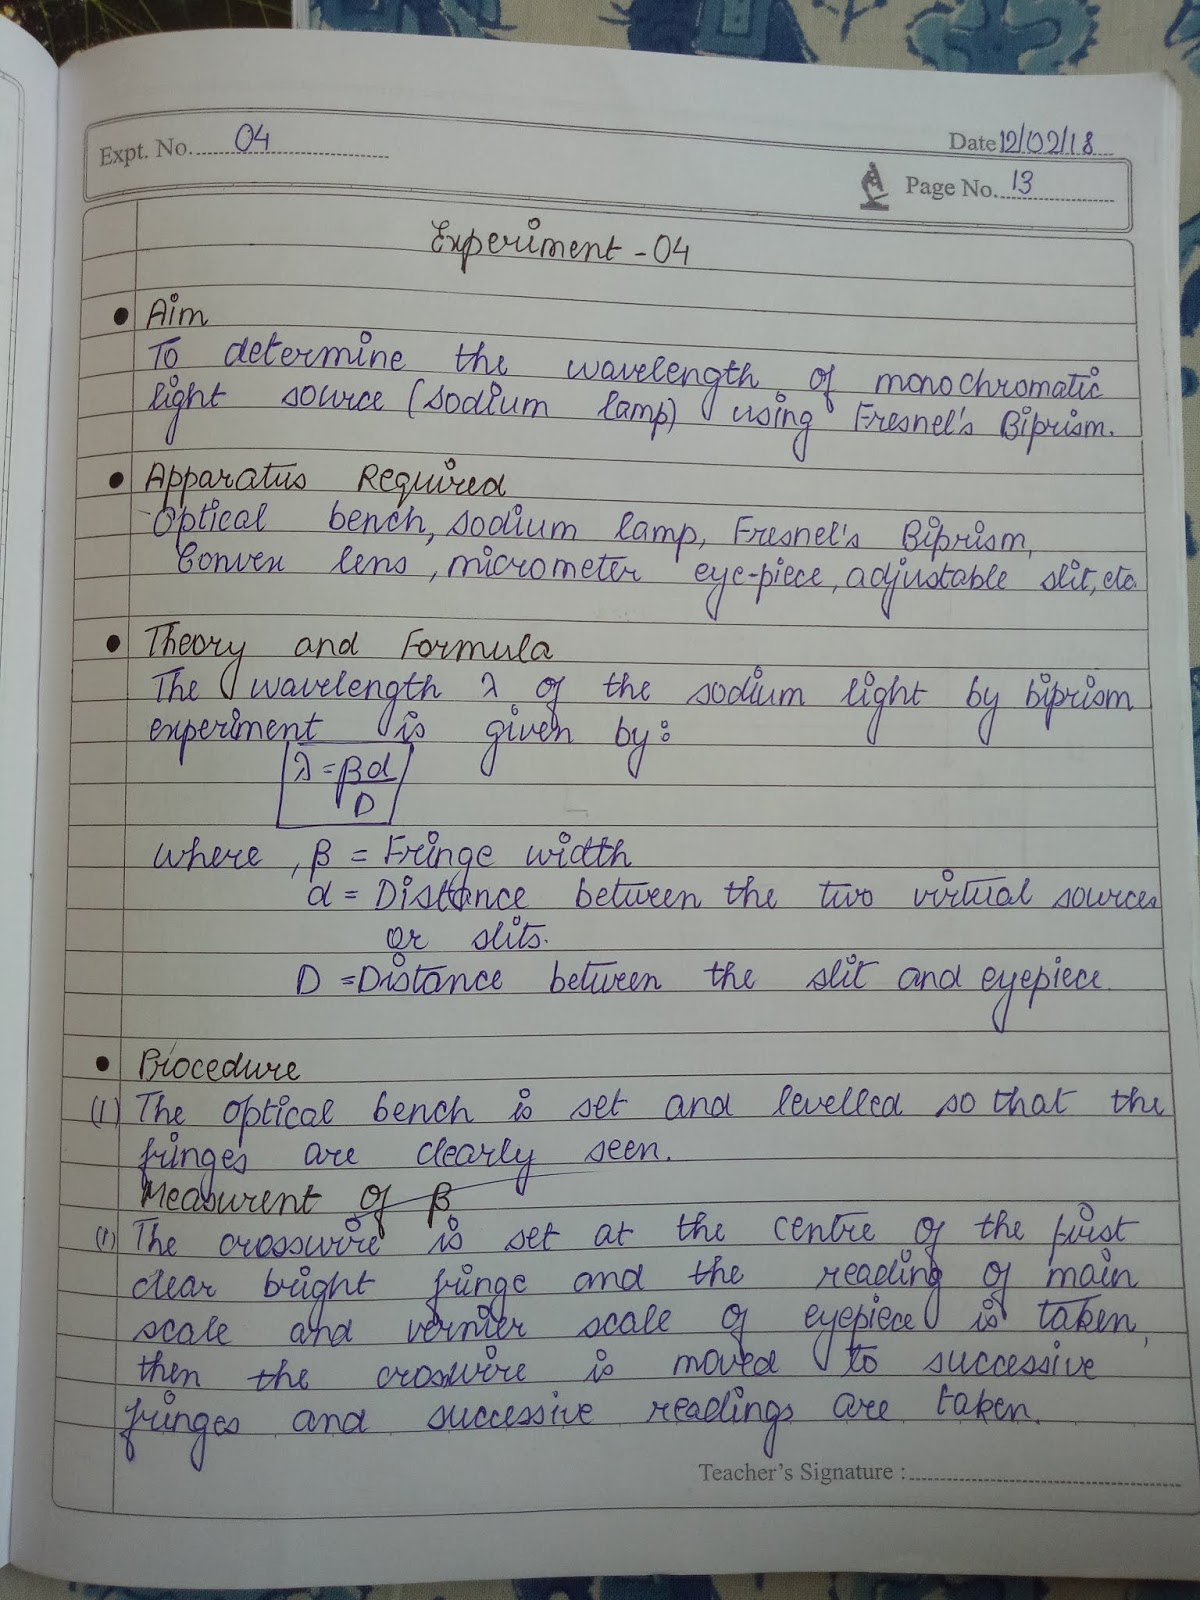 Expt. No. 04
Date 12/02/18
Page No. 13
Experiment - 04
• Aim
To determine the wavelength of monochromatic
light source (sodium lamp) using Fresnel's Biprism.
• Apparatus Required
Optical bench, sodium lamp, Fresnel's Biprism,
Convex lens, micrometer eye-piece, adjustable slit, etc
• Theory and Formula
The wavelength λ of the sodium light by biprism
experiment is given by:
λ = βd
D
where, β = Fringe width
d = Distance between the two virtual sources
or slits.
D = Distance between the slit and eyepiece.
• Procedure
(1) The optical bench is set and levelled so that the
fringes are clearly seen.
Measurent of β
(1) The crosswire is set at the centre of the first
clear bright fringe and the reading of main
scale and vernier scale of eyepiece is taken,
then the croswire is moved to successive
fringes and successive readings are taken.
Teacher's Signature :